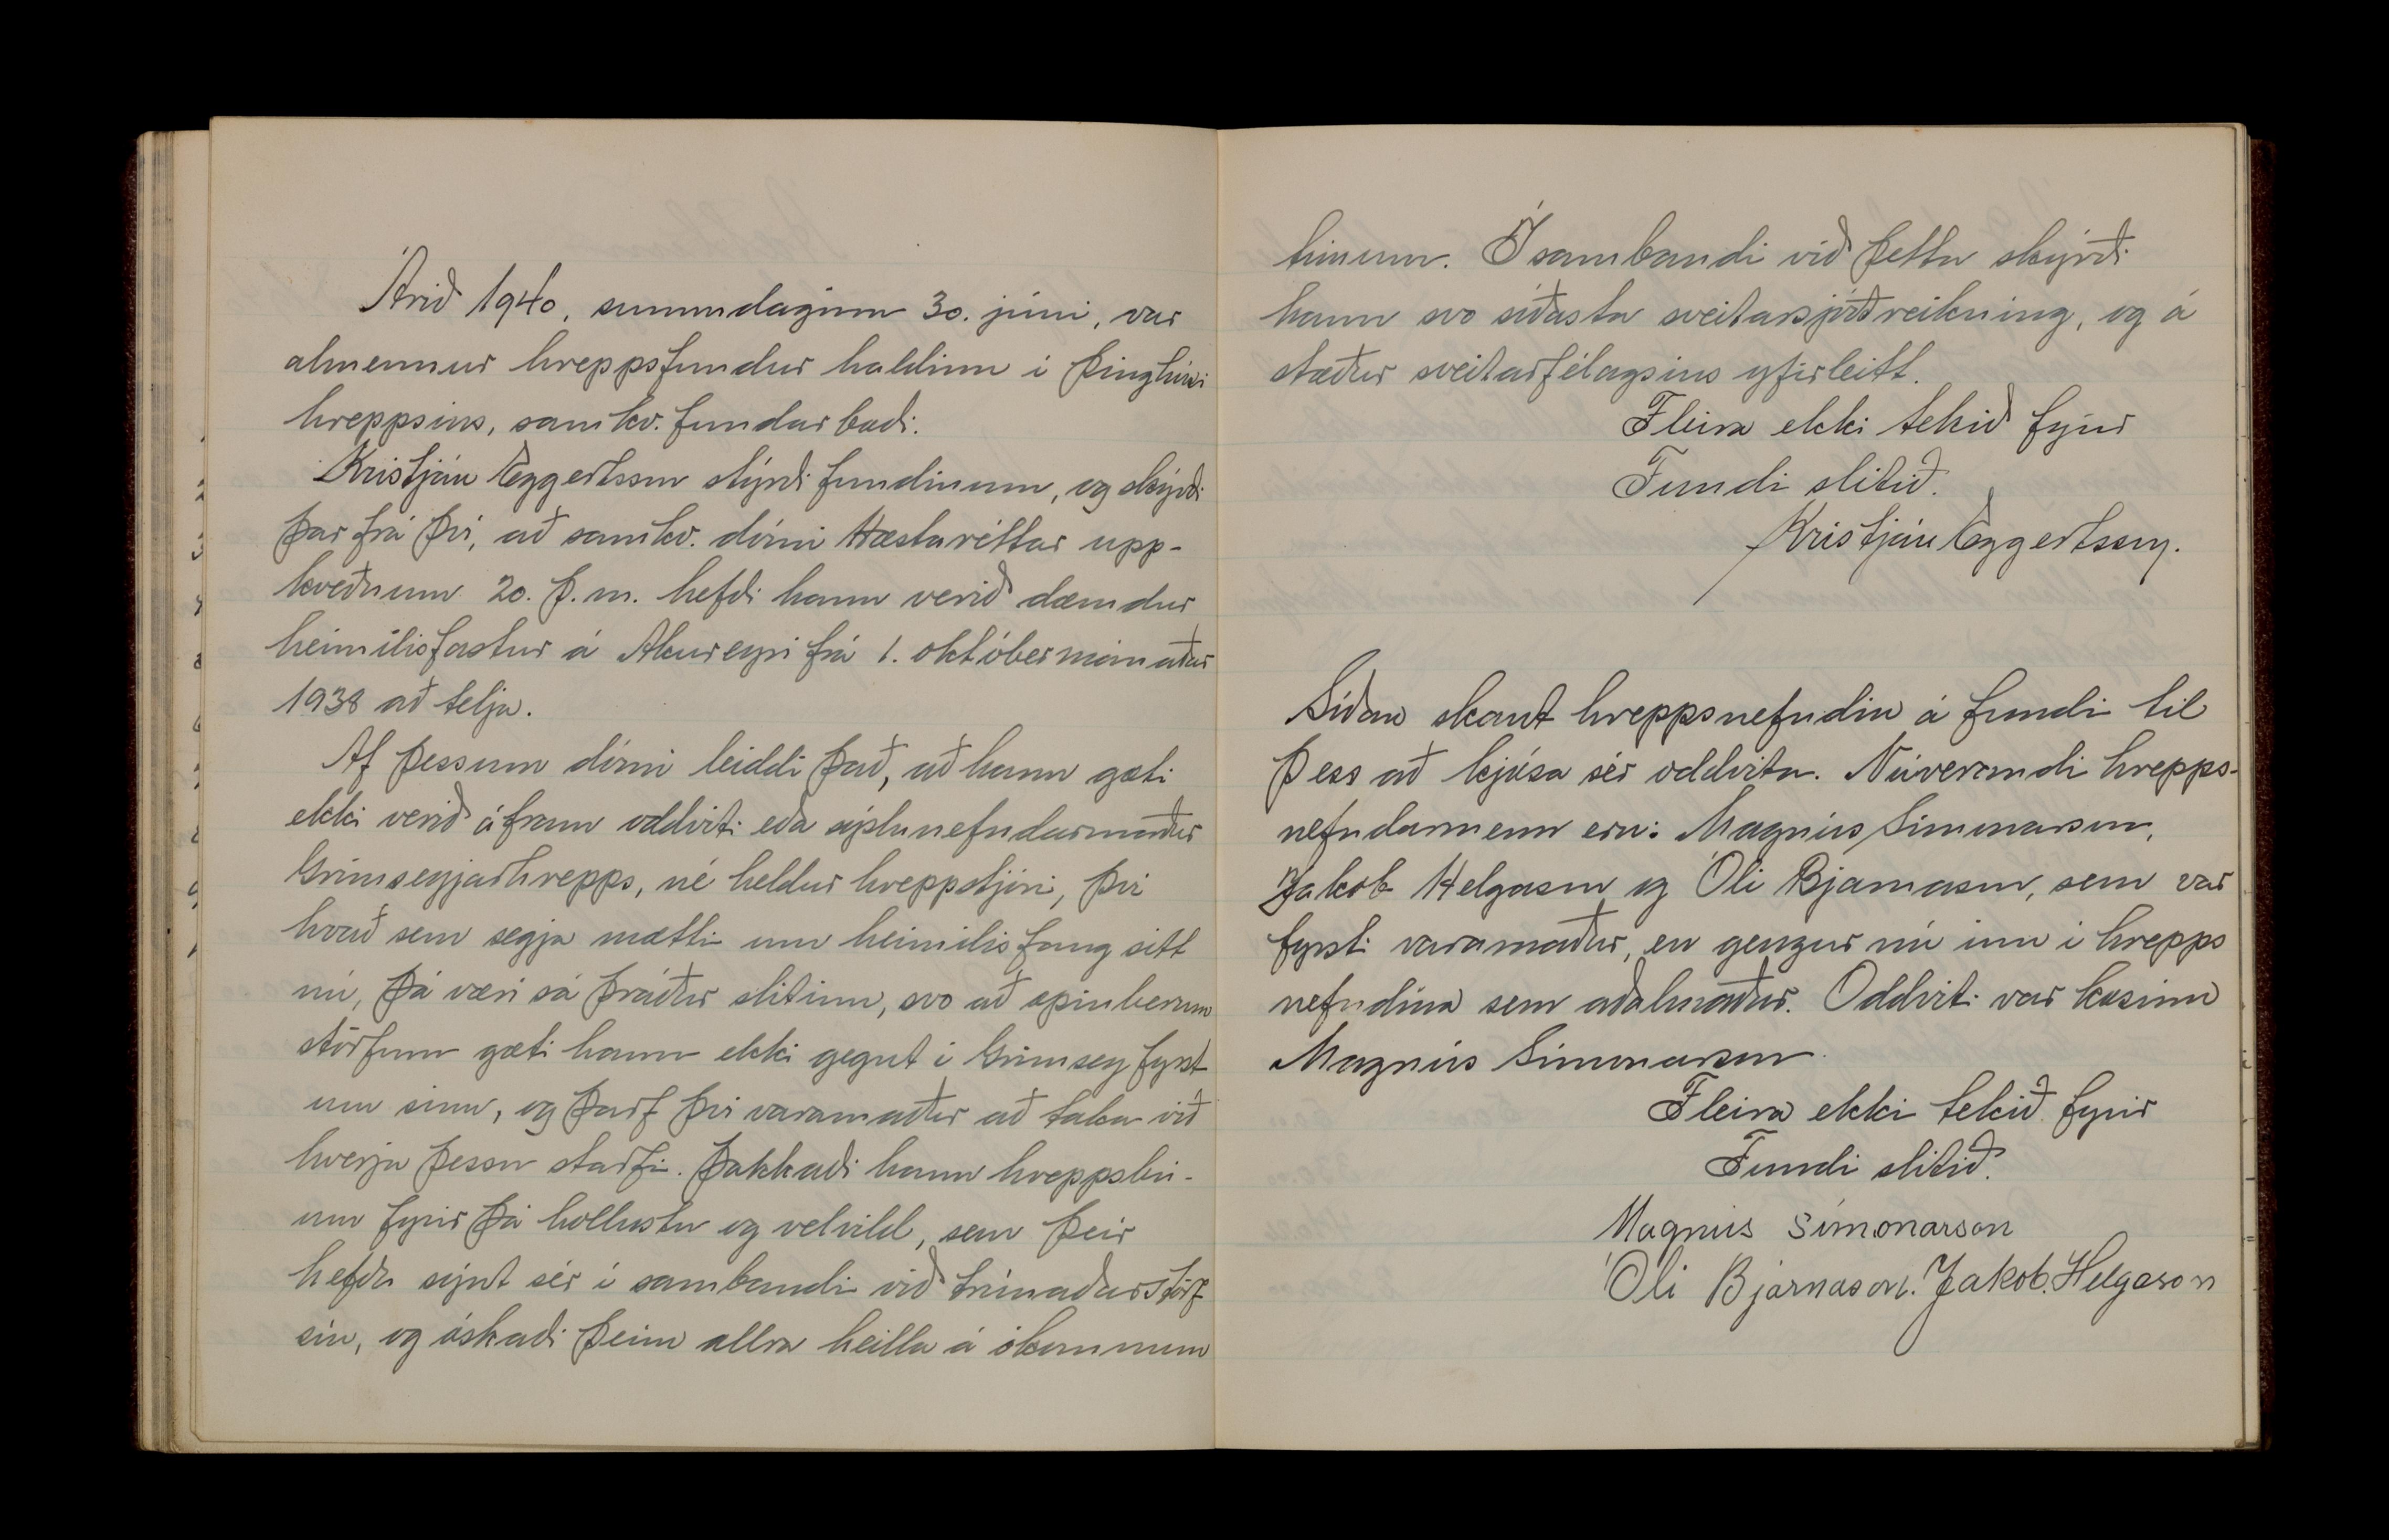 Árið 1940, sunnudaginn 30. júní, var
almennur hreppsfundur haldinn í þinghúsi
hreppsins, samkv. fundarboði.
Kristján Eggertsson stýrði fundinum, og skýrði
þar frá því, að samkv. dómi Hæstaréttar upp-
kveðnum 20. þ.m. hefði hann verið dæmdur
heimilisfastur á Akureyri frá 1. októbermánaðar
1938 að telja.
Af þessum dómi leiddi það, að hann gæti
ekki verið áfram oddviti eða sýslunefndarmaður
Grímseyjarhrepps, né heldur hreppstjóri, því
hvað sem segja mætti um heimilisfang sitt
nú, þá væri sá þráður slitinn, svo að opinberum
störfum gæti hann ekki gegnt í Grímsey fyrst
um sinn, og þarf því varamaður að taka við
hverju þessu starfi. Þakkaði hann hreppsbú-
um fyrir þá hollustu og velvild, sem þeir
hefðu sýnt sér í sambandi við trúnaðarstörf
sín, og óskaði þeim allra heilla á ókomnum
tímum. Í sambandi við þetta skýrði
hann svo síðasta sveitarsjóðreikning, og á
stæður sveitarfélagsins yfirleitt.
Fleira ekki tekið fyrir
Fundi slitið.
Kristján Eggertsson.
Síðan skaut hreppsnefndin á fundi til
þess að kjósa sér oddvita. Núverandi hrepps-
nefndarmenn eru: Magnús Símonarson,
Jakob Helgason og Óli Bjarnason, sem var
fyrsti varamaður, en gengur nú inn í hrepps
nefndina sem aðalmaður. Oddviti var kosinn
Magnús Símonarson.
Fleira ekki tekið fyrir
Fundi slitið.
Magnús Símonarson
Óli Bjarnason. Jakob. Helgason